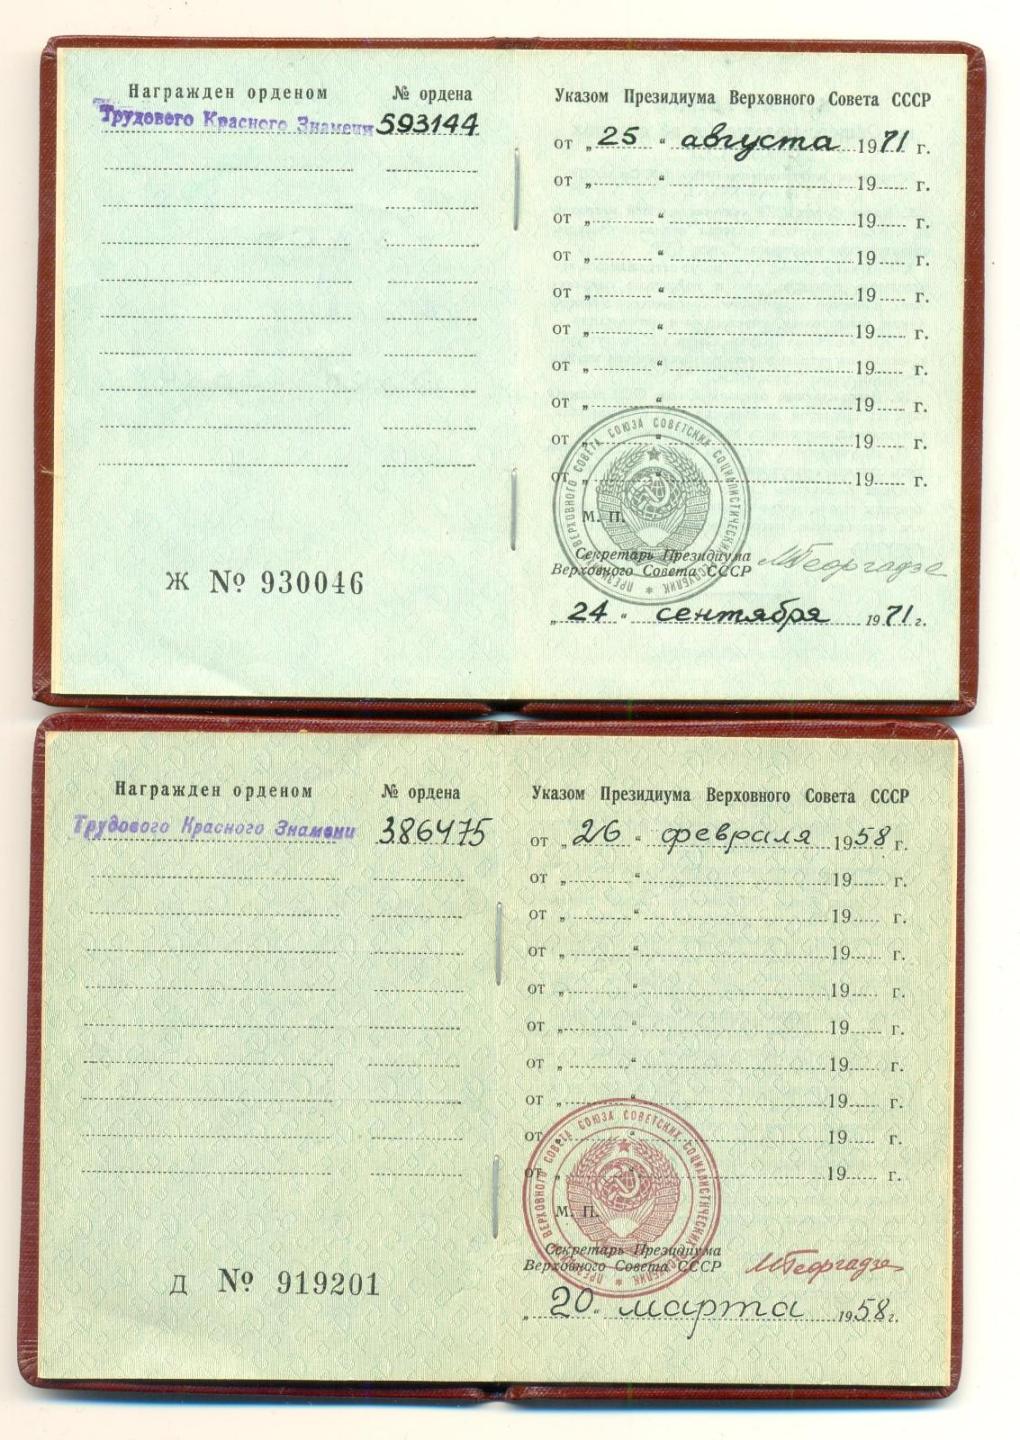 Награжден орденом
№ ордена
Трудового Красного Знамени 593144
Ж № 930046
Указом Президиума Верховного Совета СССР
от „25“ августа 1971 г.
от „ “ 19 г.
от „ “ 19 г.
от „ “ 19 г.
от „ “ 19 г.
от „ “ 19 г.
от „ “ 19 г.
от „ “ 19 г.
от „ “ 19 г.
от „ “ 19 г.
ПРЕЗИДИУМ ВЕРХОВНОГО СОВЕТА СОЮЗА СОВЕТСКИХ СОЦИАЛИСТИЧЕСКИХ РЕСПУБЛИК *
М. П.
Секретарь Президиума
Верховного Совета СССР МГеоргадзе
„24“ сентября 1971 г.
Награжден орденом
№ ордена
Трудового Красного Знамени 386475
Д № 919201
Указом Президиума Верховного Совета СССР
от „26“ февраля 1958 г.
от „ “ 19 г.
от „ “ 19 г.
от „ “ 19 г.
от „ “ 19 г.
от „ “ 19 г.
от „ “ 19 г.
от „ “ 19 г.
от „ “ 19 г.
от „ “ 19 г.
ПРЕЗИДИУМ ВЕРХОВНОГО СОВЕТА СОЮЗА СОВЕТСКИХ СОЦИАЛИСТИЧЕСКИХ РЕСПУБЛИК *
М. П.
Секретарь Президиума
Верховного Совета СССР МГеоргадзе
„20“ марта 1958 г.